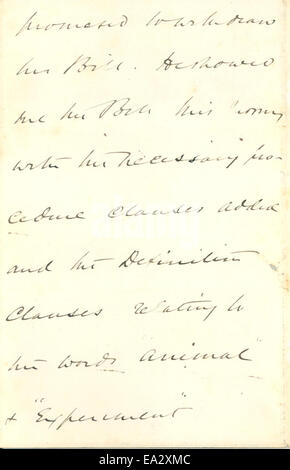 promised to withdraw
his Bill. He showed
me his Bill this morning
with the necessary pro-
cedure clauses added
and the Definition
Clauses relating to
the words "Animal"
& "Experiment"
alamy
EA2XMC